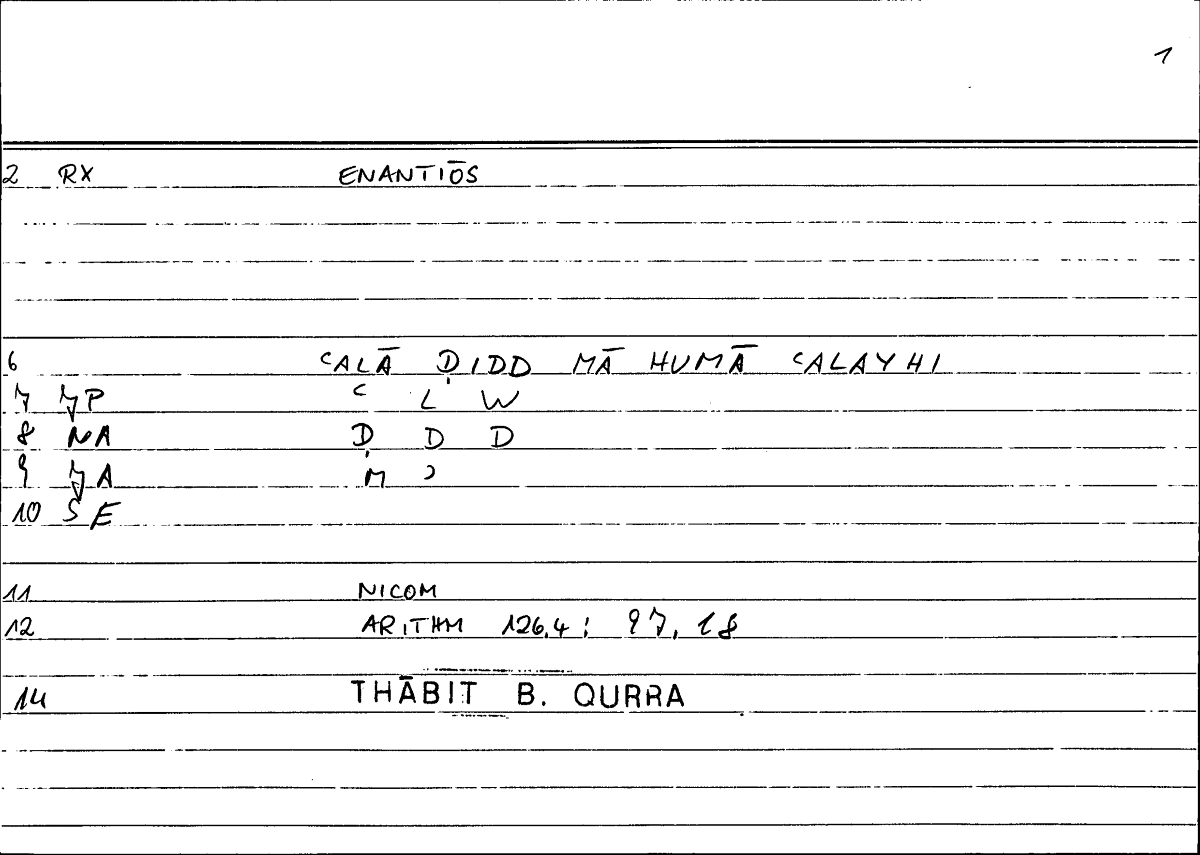 1
2 RX ENANTIŌS
6 ʿALĀ ḌIDD MĀ HUMĀ ʿALAYHI
7 JP ʿ L W
8 NA Ḍ D D
9 JA M ʾ
10 SE
11 NICOM
12 ARITHM 126,4 : 97, 18
14 THĀBIT B. QURRA